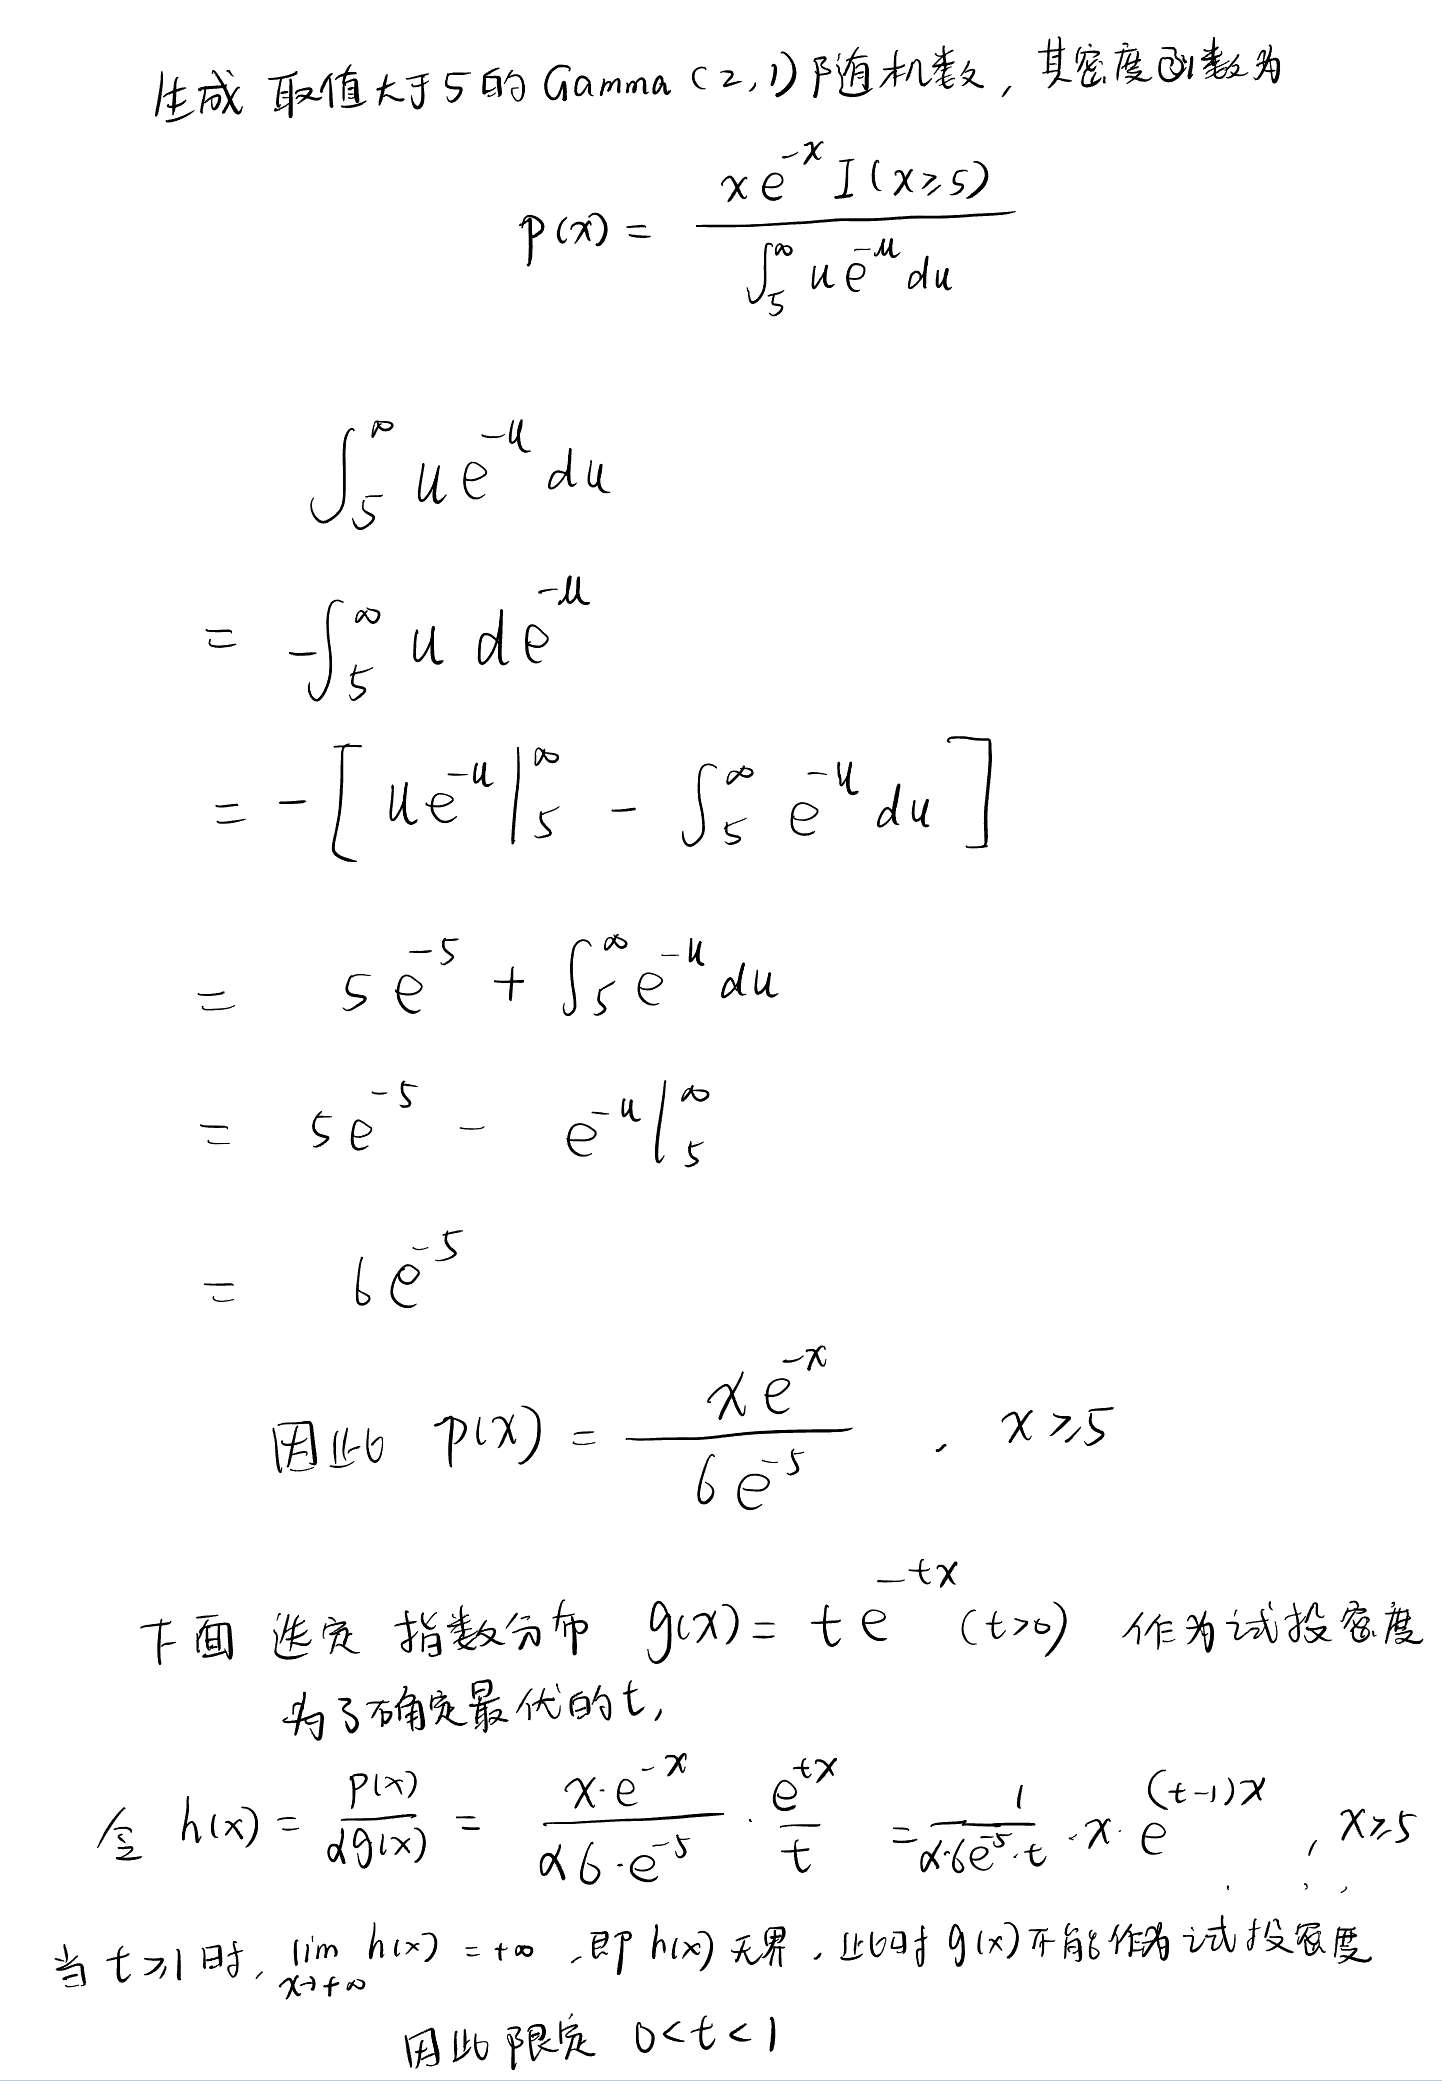 生成 取值大于5的 Gamma (2,1) 随机数, 其密度函数为
p(x) = \frac{x e^{-x} I(x≥5)}{\int_5^∞ u e^{-u} du}
\int_5^∞ u e^{-u} du
= -\int_5^∞ u d e^{-u}
= -[ u e^{-u} |_5^∞ - \int_5^∞ e^{-u} du ]
= 5 e^{-5} + \int_5^∞ e^{-u} du
= 5 e^{-5} - e^{-u} |_5^∞
= 6 e^{-5}
因此 p(x) = \frac{x e^{-x}}{6 e^{-5}} , x≥5
下面 选定 指数分布 g(x) = t e^{-tx} (t>0) 作为试投密度
为了确定最优的t,
令 h(x) = \frac{p(x)}{αg(x)} = \frac{x·e^{-x}}{α6·e^{-5}} · \frac{e^{tx}}{t} = \frac{1}{α·6e^{-5}·t} · x · e^{(t-1)x} , x≥5
当 t≥1 时, \lim_{x→+∞} h(x) = +∞ ,即 h(x) 无界, 此时 g(x) 不能作为试投密度
因此 限定 0<t<1